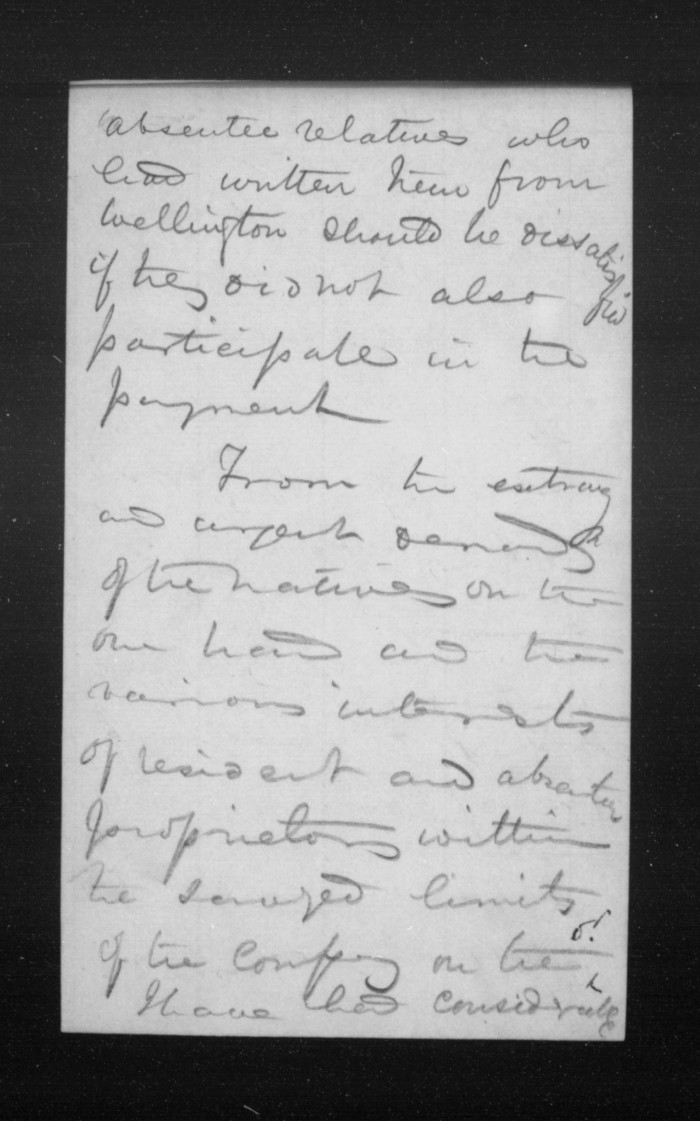 absentee relatives who
had written him from
Wellington should be dissatisfied
if they did not also
participate in the
payment
From the extravag
and urgent demands
of the natives on the
one hand and the
various interests
of resident and absentee
proprietors within
the surveyed limits
of the Company on the o!
I have had considerable